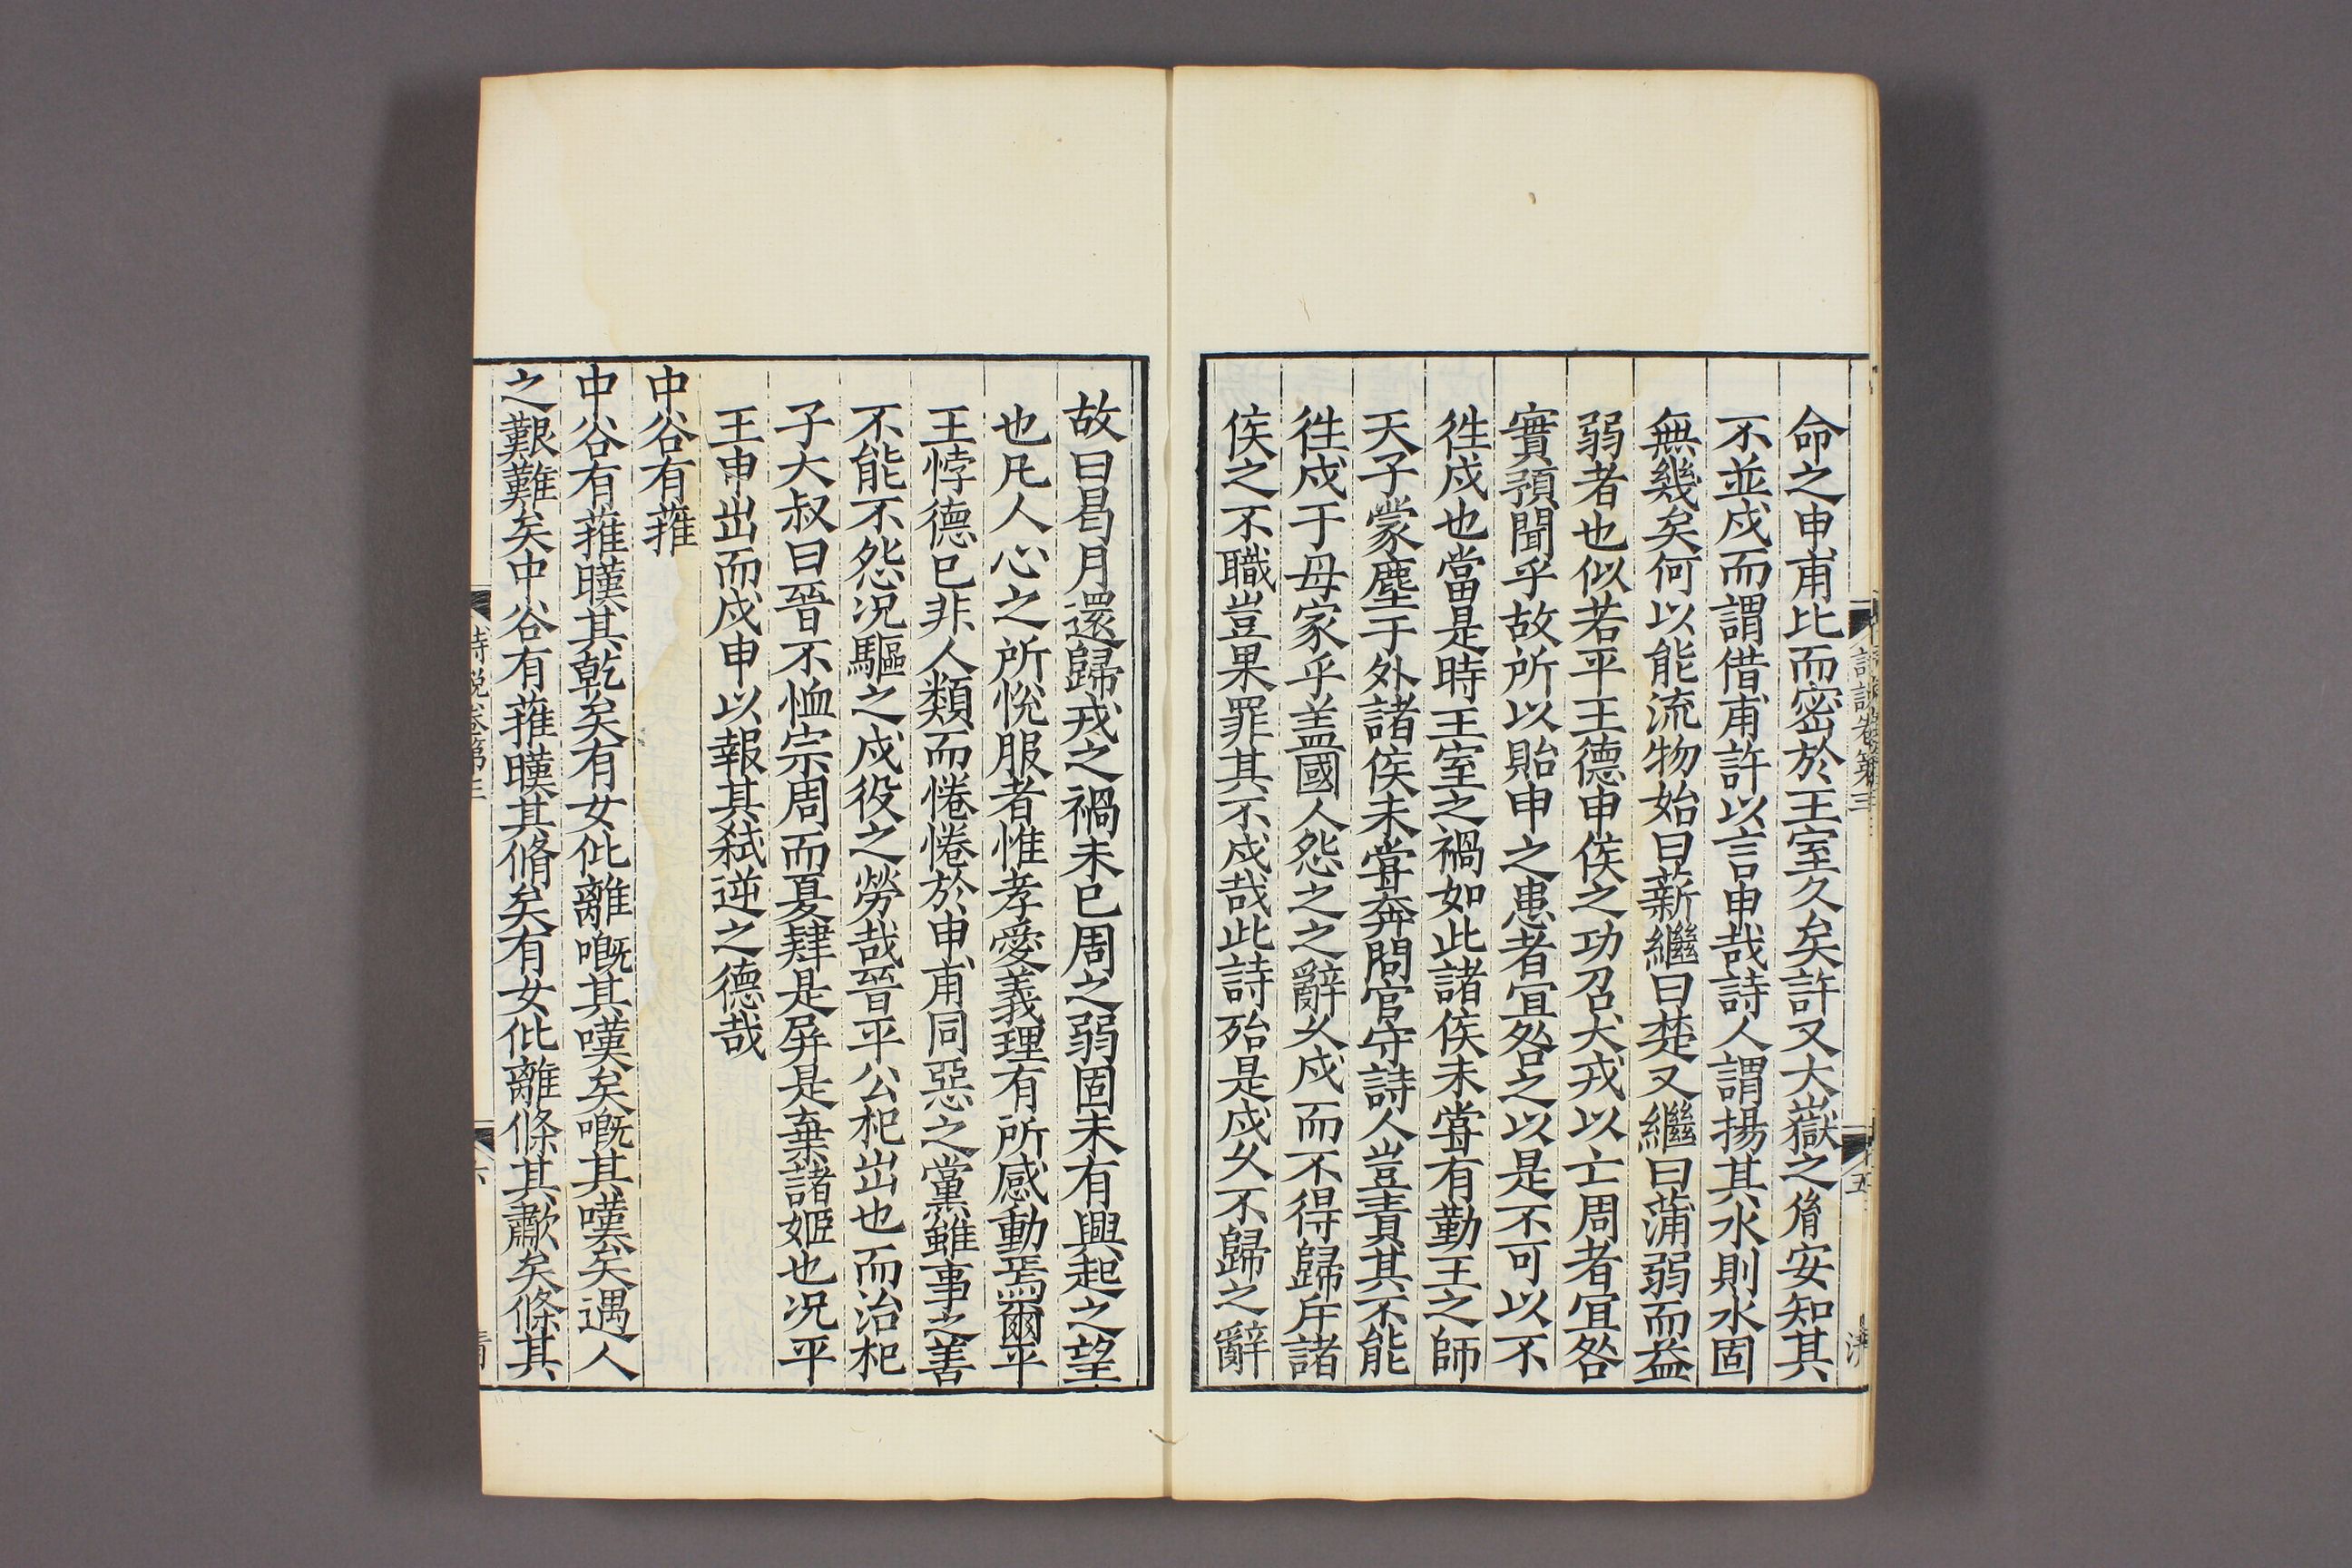 命之申甫比而密於王室久矣許又大嶽之胤安知其
不並戍而謂借甫許以言申哉詩人謂揚其水則水固
無幾矣何以能流物始曰薪繼曰楚又繼曰蒲弱而益
弱者也似若平王德申侯之功召犬戎以亡周者宜咎
實預聞乎故所以貽申之患者宜咎之以是不可以不
徃戍也當是時王室之禍如此諸侯未甞有勤王之師
天子蒙塵于外諸侯未甞奔問官守詩人豈責其不能
徃戍于母家乎盖國人怨之之辭久戍而不得歸斥諸
侯之不職豈果罪其不戍哉此詩殆是戍久不歸之辭
詩說卷第三
五
故曰曷月還歸戎之禍未已周之弱固未有興起之望
也凡人心之所悅服者惟孝愛義理有所感動焉爾平
王悖德已非人類而惓惓於申甫同惡之黨雖事之善
不能不怨况驅之戍役之勞哉晉平公杞出也而治杞
子大叔曰晉不恤宗周而夏肄是屏是棄諸姬也况平
王申出而戍申以報其弑逆之德哉
中谷有蓷
中谷有蓷暵其乾矣有女仳離嘅其嘆矣嘅其嘆矣遇人
之艱難矣中谷有蓷暵其脩矣有女仳離條其歗矣條其
詩說卷第三
六